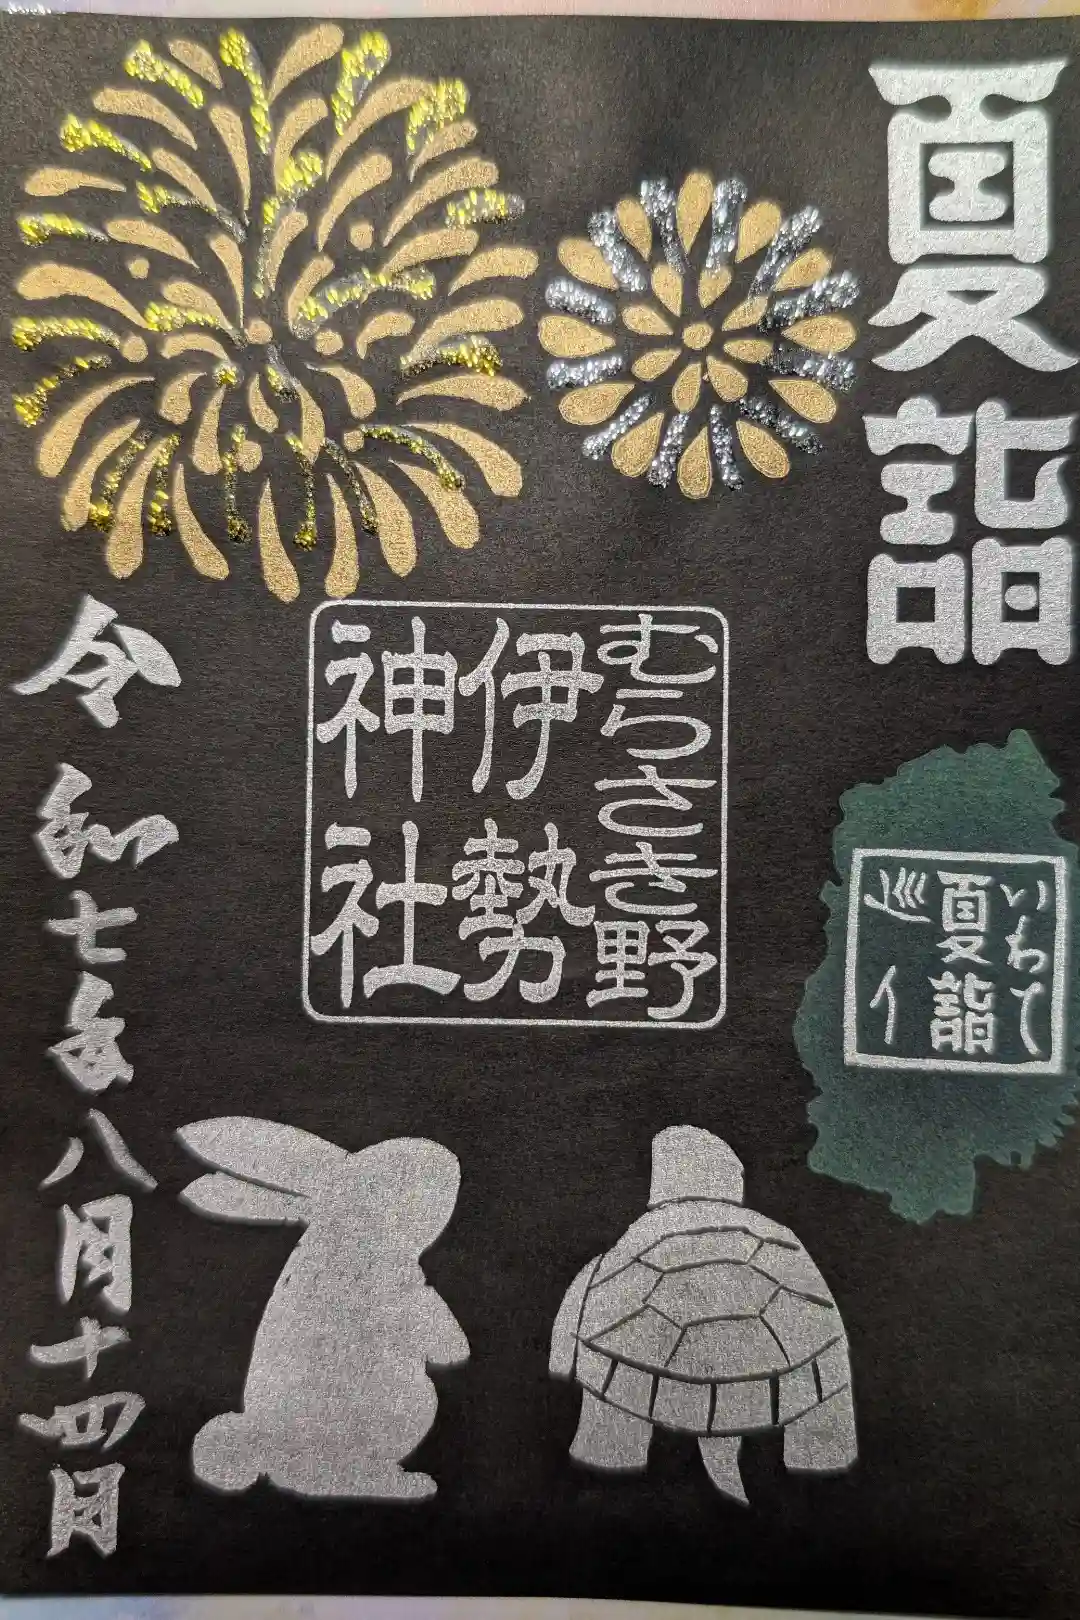 夏詣
いわて
夏詣
巡り
むらさき野
伊勢
神社
令和七年八月十四日